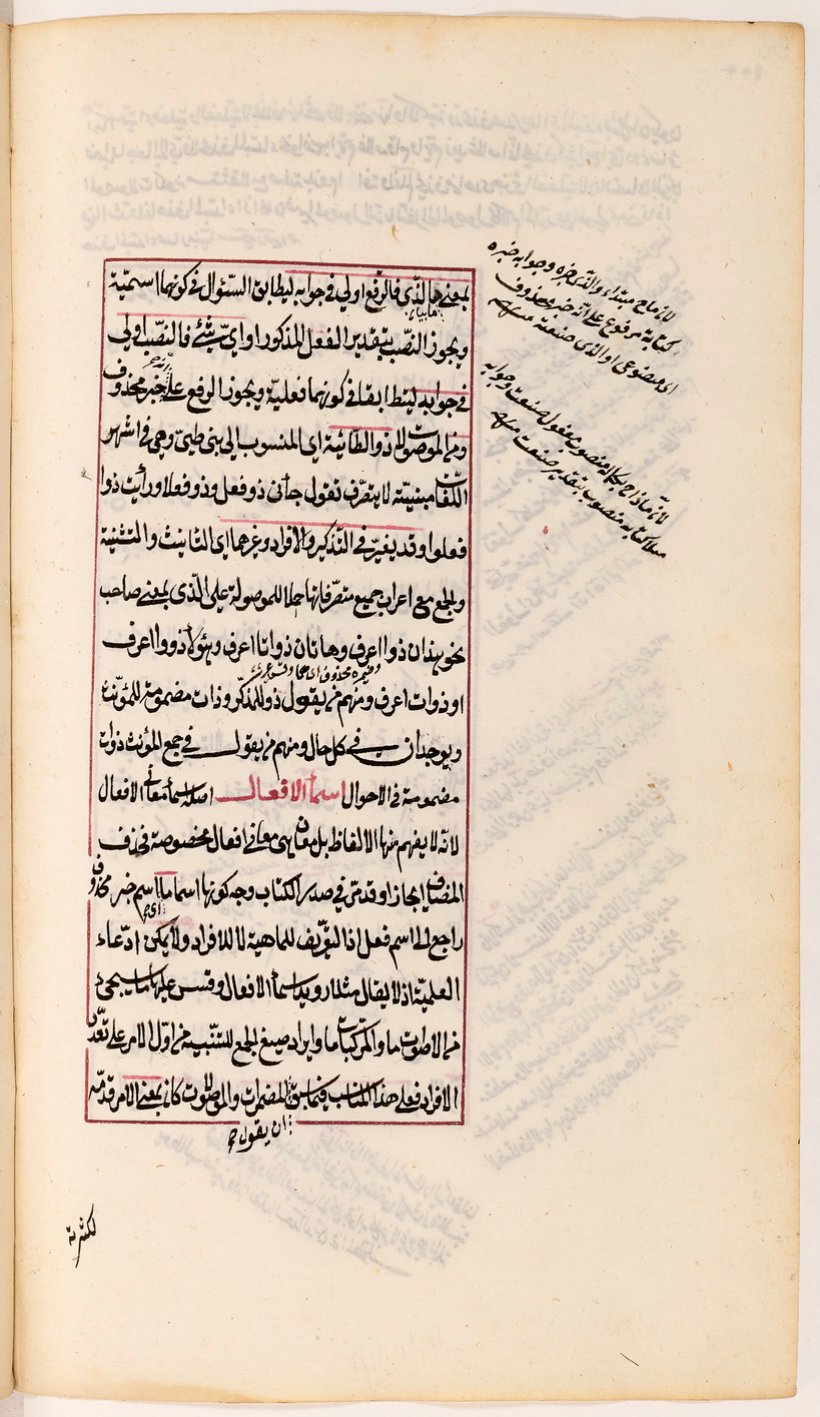 بمعنى ما الذى فالرفع اولى فى جوابه ليطابق السئوال فى كونهما اسمية
ويجوز النصب بتقدير الفعل المذكور او اى شئ فالنصب اولى
فى جوابه ليتطابقا فى كونهما فعلية ويجوز الرفع على خبر محذوف
ومن الموصولات ذو الطائية اى المنسوب الى بنى طيئ وهى فى اشهر
اللغات مبنية لا يتصرف تقول جأنى ذو فعل وذو فعلا ورأيت ذوا
فعلوا وقد يغير فى التذكير والافراد وغيرهما اى التانيث والتثنية
والجمع مع اعراب جميع متصرفاتها حملا للموصولة على الذى بمعنى صاحب
نحو هذان ذوا اعرف وهاتان ذواتا اعرف وهئولاء ذووا اعرف
او ذوات اعرف ومنهم من يقول ذو للمذكر وذات مضمومة للمؤنث
ويوحدان فى كل حال ومنهم من يقول فى جمع المؤنث ذوات
مضمومة فى الاحوال اسمأ الافعال اصله اسمأ معانى الافعال
لانه لا يفهم منها الالفاظ بل معان هى معانى افعال مخصوصة فحذف
المضاف ايجازا وقد مر فى صدر الكتاب وجه كونها اسما ما اسم خبر محذوف
راجع الى اسم فعل اذ التعريف للماهية لا للافراد ولا يمكن ادعاء
العلمية اذ لا يقال مثلا رويد اسمأ الافعال وقس عليها ما سيجئ
من الاصوات ما والمركبات ما وايراد صيغ الجمع للتنبيه من اول الامر على تعدد
الافراد فعلى هذا المناسب فيما سبق المضمرات والموصولات كان بمعنى الامر قدمه
ان يقول
لانه ماح مبتداء والذى خبره وجوابه خبره
كتابة مرفوع على انه خبر محذوف
اى مصنوعى او الذى صنعته
لانه ماذا ح بكماله منصوب مفعول صنعت وجوابه
مثلا كتابة منصوب بتقدير صنعت
لكثرته